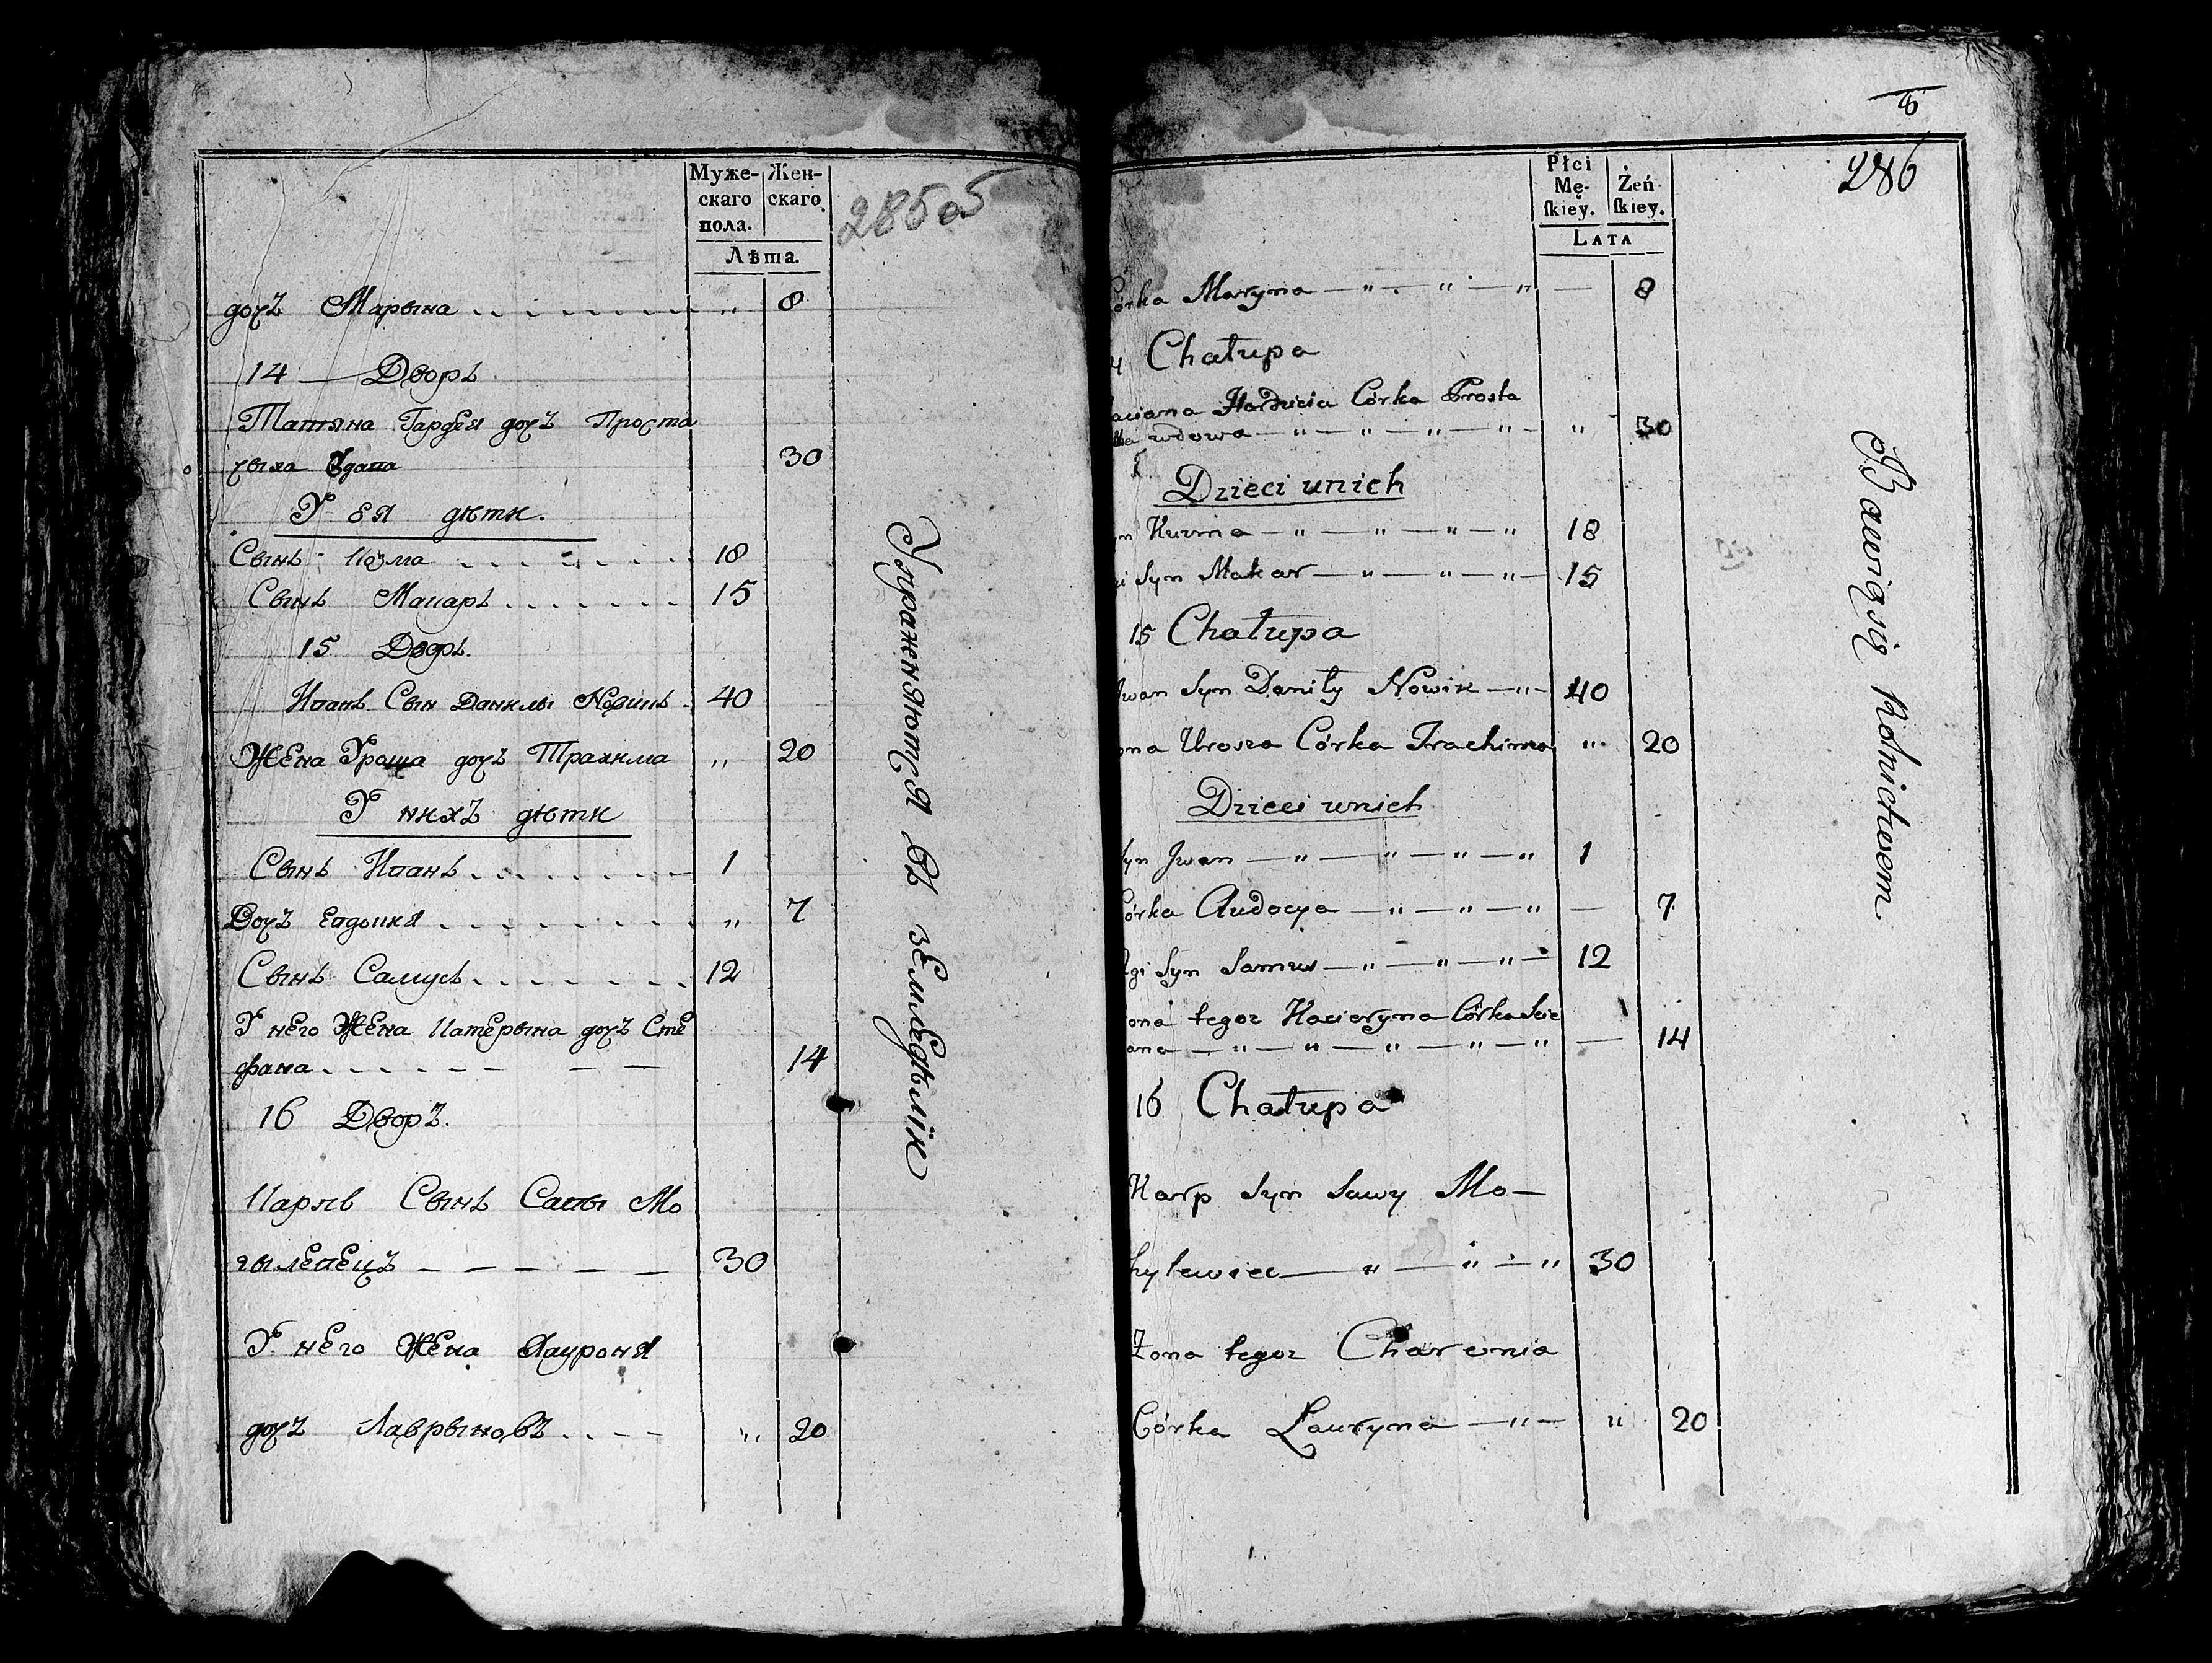 Муже-
скаго
пола.
Жен-
скаго
Лѣта.
285 об
дочъ Марына 8
14 — Дворъ
Татяна Гардея дочъ Проста
вдова 30
У ея дѣти.
Сынъ Козма 18
Сынъ Макаръ 15
15 Дворъ.
Иванъ Сын Данилы Новикъ 40
Жена Уроша дочъ Трахима " 20
У нихъ дѣти
Сынъ Иванъ 1
Дочъ Евдокия " 7
Сынъ Самусь 12
У него Жена Катерына дочъ Сте
фана 14
16 Дворъ.
Карпъ Сынъ Савы Мо
гылевецъ — — — — — 30
У него Жена Хауроня
дочъ Лаврыновъ " 20
Упражняются въ земледѣліи
8
286
Płci
Mę-
ſkiey.
Żeń-
ſkiey.
LATA
Córka Maryna — " — " — " — 8
Chałupa
Hardzieia Córka Prosta
wdowa — " — " — " — " — " 30
Dzieci unich
Kuzma — " — " — " — " 18
Syn Makar — " — " — " — 15
15 Chałupa
Iwan Syn Daniły Nowik — " — 40
Urosza Córka Trachima " 20
Dzieci unich
Syn Jwan — " — " — " — " 1
Córka Audocya — " — " — " — 7
Syn Samus — " — " — " — 12
tegoz Kacieryna Córka Scie
— " — " — " — " — " — 14
16 Chałupa
Karp Syn Sawy Mo—
hylewiec — " — " — " 30
Zona tegoz Charunia
Córka Lauryna — " — " 20
Bawią się Rolnictwem